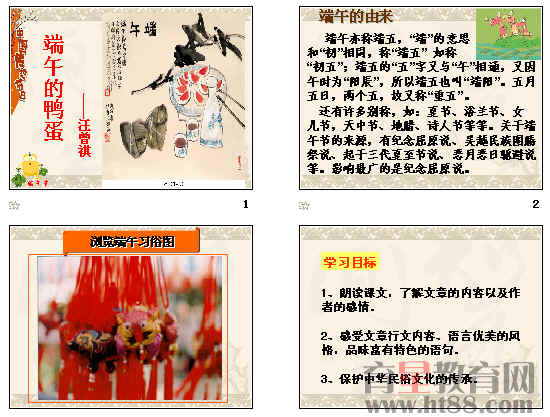 端午的鸭蛋
——汪曾祺
端午
1
端午的由来
端午亦称端五，“端”的意思
和“初”相同，称“端五”如称
“初五”；端五的“五”字又与“午”相通，又因
午时为“阳辰”，所以端五也叫“端阳”。五月
五日，两个五，故又称“重五”。
还有许多别称，如：夏节、浴兰节、女
儿节，天中节、地腊、诗人节等等。关于端
午节的来源，有纪念屈原说、吴越民族图腾
祭说、起于三代夏至节说、恶月恶日驱避说
等。影响最广的是纪念屈原说。
2
浏览端午习俗图
学习目标
1、朗读课文，了解文章的内容以及作
者的感情。
2、感受文章行文内容、语言优美的风
格，品味富有特色的语句。
3、保护中华民俗文化的传承。
育星教育网
www.ht88.com